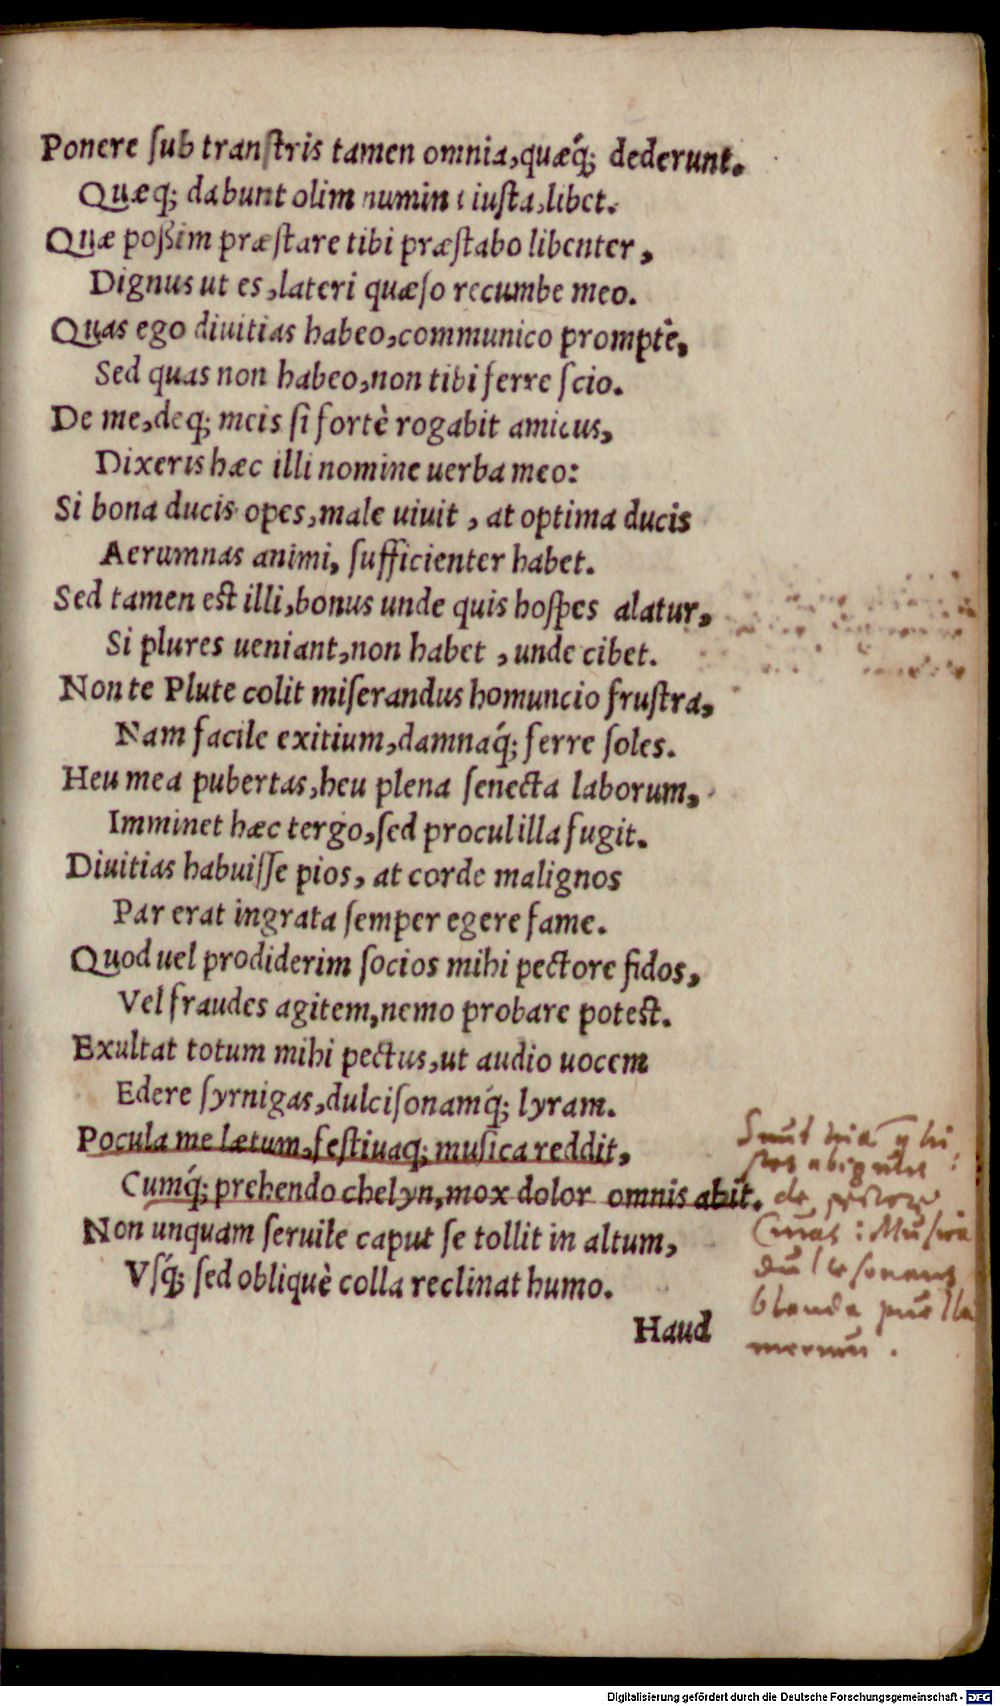 Ponere ſub tranſtris tamen omnia, quæq́; dederunt.
Quæq; dabunt olim numina iuſta, libet.
Quæ poßim præſtare tibi præſtabo libenter,
Dignus ut es, lateri quæſo recumbe meo.
Quas ego diuitias habeo, communico promptè,
Sed quas non habeo, non tibi ferre ſcio.
De me, deq; meis ſi fortè rogabit amicus,
Dixeris hæc illi nomine uerba meo:
Si bona ducis opes, male uiuit, at optima ducis
Aerumnas animi, ſufficienter habet.
Sed tamen eſt illi, bonus unde quis hoſpes alatur,
Si plures ueniant, non habet, unde cibet.
Non te Plute colit miſerandus homuncio fruſtra,
Nam facile exitium, damnaq́; ferre ſoles.
Heu mea pubertas, heu plena ſenecta laborum,
Imminet hæc tergo, ſed procul illa fugit.
Diuitias habuiſſe pios, at corde malignos
Par erat ingrata ſemper egere fame.
Quod uel prodiderim ſocios mihi pectore fidos,
Vel fraudes agitem, nemo probare poteſt.
Exultat totum mihi pectus, ut audio uocem
Edere ſyrnigas, dulciſonamq́; lyram.
Pocula me lætum, feſtiuaq; muſica reddit,
Cumq́; prehendo chelyn, mox dolor omnis abit.
Non unquam ſeruile caput ſe tollit in altum,
Vſq́; ſed obliquè colla reclinat humo.
Haud
Sunt
de pectore
Curas: Muſica
blanda puella
merum.
Digitalisierung gefördert durch die Deutsche Forschungsgemeinschaft - DFG